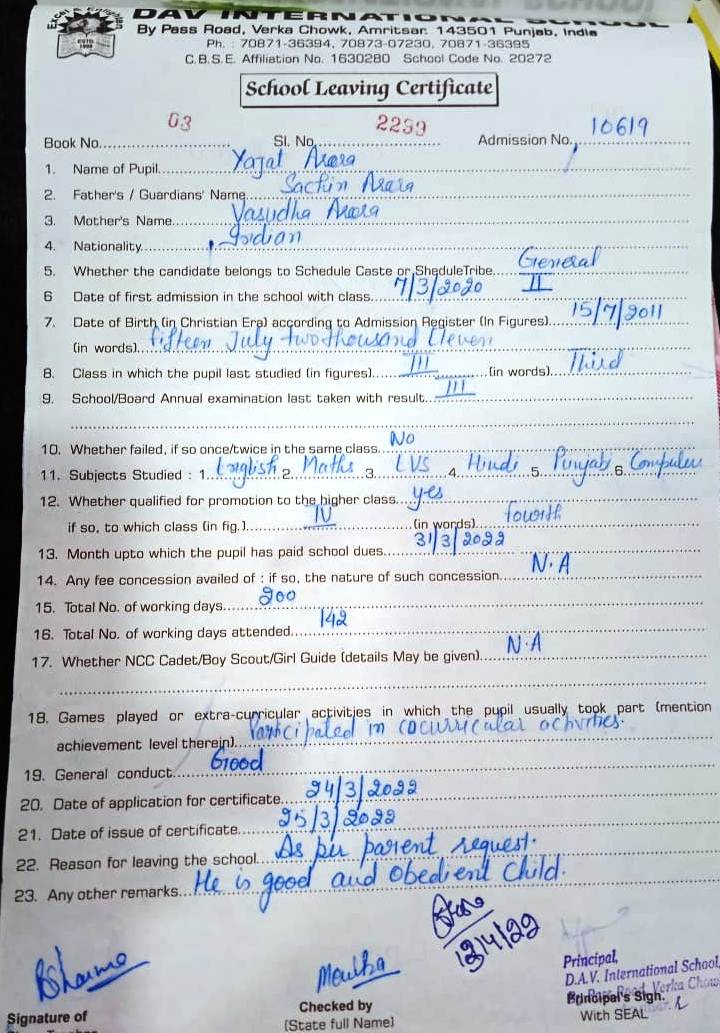 DAV INTERNATIONAL SCHOOL
By Pass Road, Verka Chowk, Amritsar. 143501 Punjab, India
Ph. : 70871-36394, 70873-07230, 70871-36395
C.B.S.E. Affiliation No. 1630280 School Code No. 20272
School Leaving Certificate
Book No. 03 Sl. No. 2239 Admission No. 10619
1. Name of Pupil Yajat Arora
2. Father's / Guardians' Name Sachin Arora
3. Mother's Name Vasudha Arora
4. Nationality Indian
5. Whether the candidate belongs to Schedule Caste or SheduleTribe General
6 Date of first admission in the school with class 7/3/2020 II
7. Date of Birth (in Christian Era) according to Admission Register (In Figures) 15/7/2011
(in words) fifteen July two thousand Eleven
8. Class in which the pupil last studied (in figures) III (in words) Third
9. School/Board Annual examination last taken with result III
10. Whether failed, if so once/twice in the same class No
11. Subjects Studied : 1. English 2. Maths 3. EVS 4. Hindi 5. Punjabi 6. Computer
12. Whether qualified for promotion to the higher class yes
if so, to which class (in fig.) IV (in words) fourth
13. Month upto which the pupil has paid school dues 31/3/2022
14. Any fee concession availed of : if so, the nature of such concession N.A
15. Total No. of working days 200
16. Total No. of working days attended 142
17. Whether NCC Cadet/Boy Scout/Girl Guide (details May be given) N.A
18. Games played or extra-curricular activities in which the pupil usually took part (mention
achievement level therein) Participated in cocurricular activities.
19. General conduct Good
20. Date of application for certificate 24/3/2022
21. Date of issue of certificate 25/3/2022
22. Reason for leaving the school As per parent request.
23. Any other remarks He is good and obedient child.
BSharma
Principal,
D.A.V. International School,
By Pass Road, Verka Chow
Principal's Sign.
With SEAL
Checked by
(State full Name)
Signature of